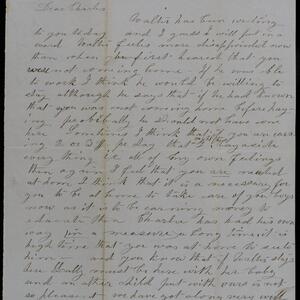 Dear Charles
Walter has been writing
to you today and I guess I will put in a
word Walter feels more disappointed now
than when he first heard that you
were not coming home if he was able
to work I think he would be willing to
stay although he says that if he had known
that you was not coming home before hay-
ing probibilly he should not have come
here Sometimes I think that if you are ear-
ing 2 or 3 $ pr day that I lay aside
everything else all of my own feelings
then again I feel that you are needed
at home I think that it is a necessary for
you to be at home to take care of your boys
now as it is to be earning money to
educate them Charlie has had his own
way in a measure a long time it is
high time that you was at home to see to
him and you know that if Walter stays
here Sally must be here with her baby
and an other child put with ours is not
so pleasant we have got along very well